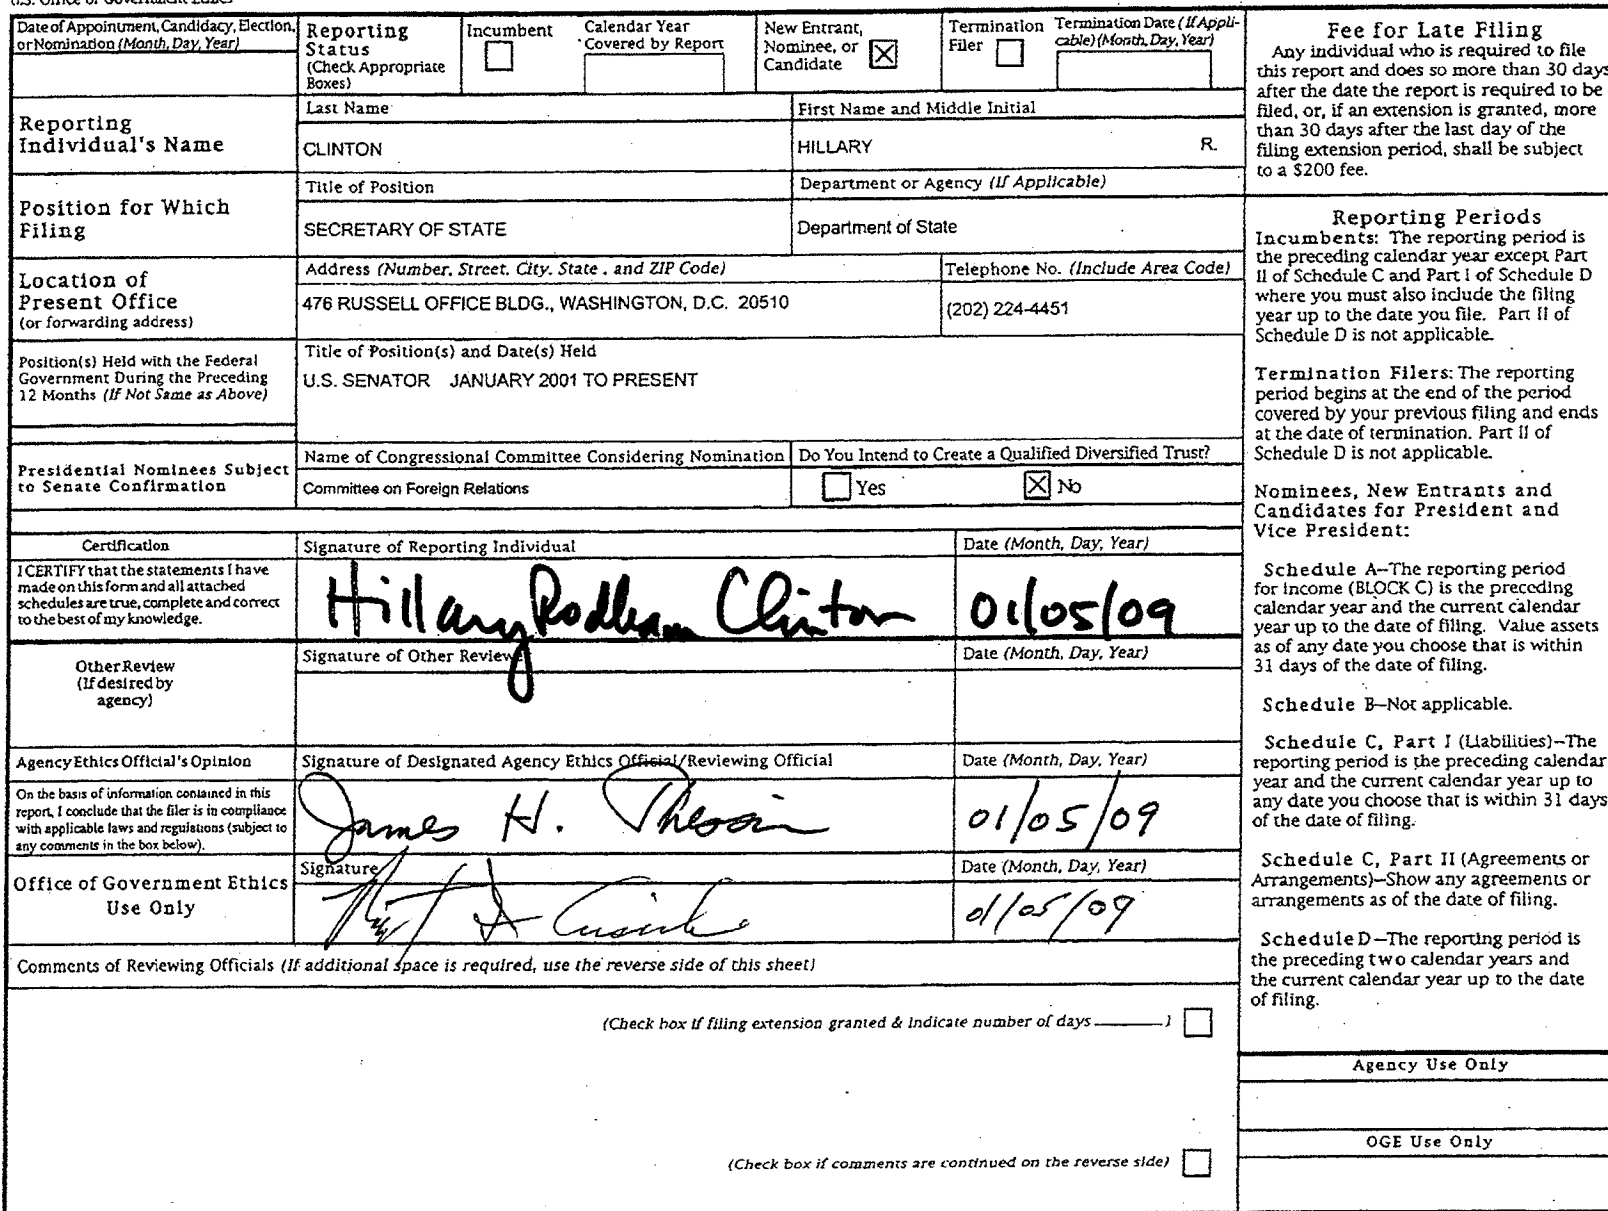 U.S. Office of Government Ethics
Date of Appointment, Candidacy, Election, or Nomination (Month, Day, Year)
Reporting Status (Check Appropriate Boxes)
Incumbent
Calendar Year Covered by Report
New Entrant, Nominee, or Candidate
X
Termination Filer
Termination Date (If Applicable) (Month, Day, Year)
Reporting Individual's Name
Last Name
CLINTON
First Name and Middle Initial
HILLARY R.
Position for Which Filing
Title of Position
SECRETARY OF STATE
Department or Agency (If Applicable)
Department of State
Location of Present Office (or forwarding address)
Address (Number, Street, City, State, and ZIP Code)
476 RUSSELL OFFICE BLDG., WASHINGTON, D.C. 20510
Telephone No. (Include Area Code)
(202) 224-4451
Position(s) Held with the Federal Government During the Preceding 12 Months (If Not Same as Above)
Title of Position(s) and Date(s) Held
U.S. SENATOR JANUARY 2001 TO PRESENT
Presidential Nominees Subject to Senate Confirmation
Name of Congressional Committee Considering Nomination
Committee on Foreign Relations
Do You Intend to Create a Qualified Diversified Trust?
Yes
X No
Certification
I CERTIFY that the statements I have
made on this form and all attached
schedules are true, complete and correct
to the best of my knowledge.
Signature of Reporting Individual
Hillary Rodham Clinton
Date (Month, Day, Year)
01/05/09
Other Review
(If desired by
agency)
Signature of Other Reviewer
Date (Month, Day, Year)
Agency Ethics Official's Opinion
On the basis of information contained in this
report, I conclude that the filer is in compliance
with applicable laws and regulations (subject to
any comments in the box below).
Signature of Designated Agency Ethics Official/Reviewing Official
James H. Thessin
Date (Month, Day, Year)
01/05/09
Office of Government Ethics
Use Only
Signature
Date (Month, Day, Year)
01/05/09
Comments of Reviewing Officials (If additional space is required, use the reverse side of this sheet)
(Check box if filing extension granted & indicate number of days ______)
(Check box if comments are continued on the reverse side)
Fee for Late Filing
Any individual who is required to file
this report and does so more than 30 days
after the date the report is required to be
filed, or, if an extension is granted, more
than 30 days after the last day of the
filing extension period, shall be subject
to a $200 fee.
Reporting Periods
Incumbents: The reporting period is
the preceding calendar year except Part
II of Schedule C and Part I of Schedule D
where you must also include the filing
year up to the date you file. Part II of
Schedule D is not applicable.
Termination Filers: The reporting
period begins at the end of the period
covered by your previous filing and ends
at the date of termination. Part II of
Schedule D is not applicable.
Nominees, New Entrants and
Candidates for President and
Vice President:
Schedule A--The reporting period
for income (BLOCK C) is the preceding
calendar year and the current calendar
year up to the date of filing. Value assets
as of any date you choose that is within
31 days of the date of filing.
Schedule B--Not applicable.
Schedule C, Part I (Liabilities)--The
reporting period is the preceding calendar
year and the current calendar year up to
any date you choose that is within 31 days
of the date of filing.
Schedule C, Part II (Agreements or
Arrangements)--Show any agreements or
arrangements as of the date of filing.
Schedule D--The reporting period is
the preceding two calendar years and
the current calendar year up to the date
of filing.
Agency Use Only
OGE Use Only